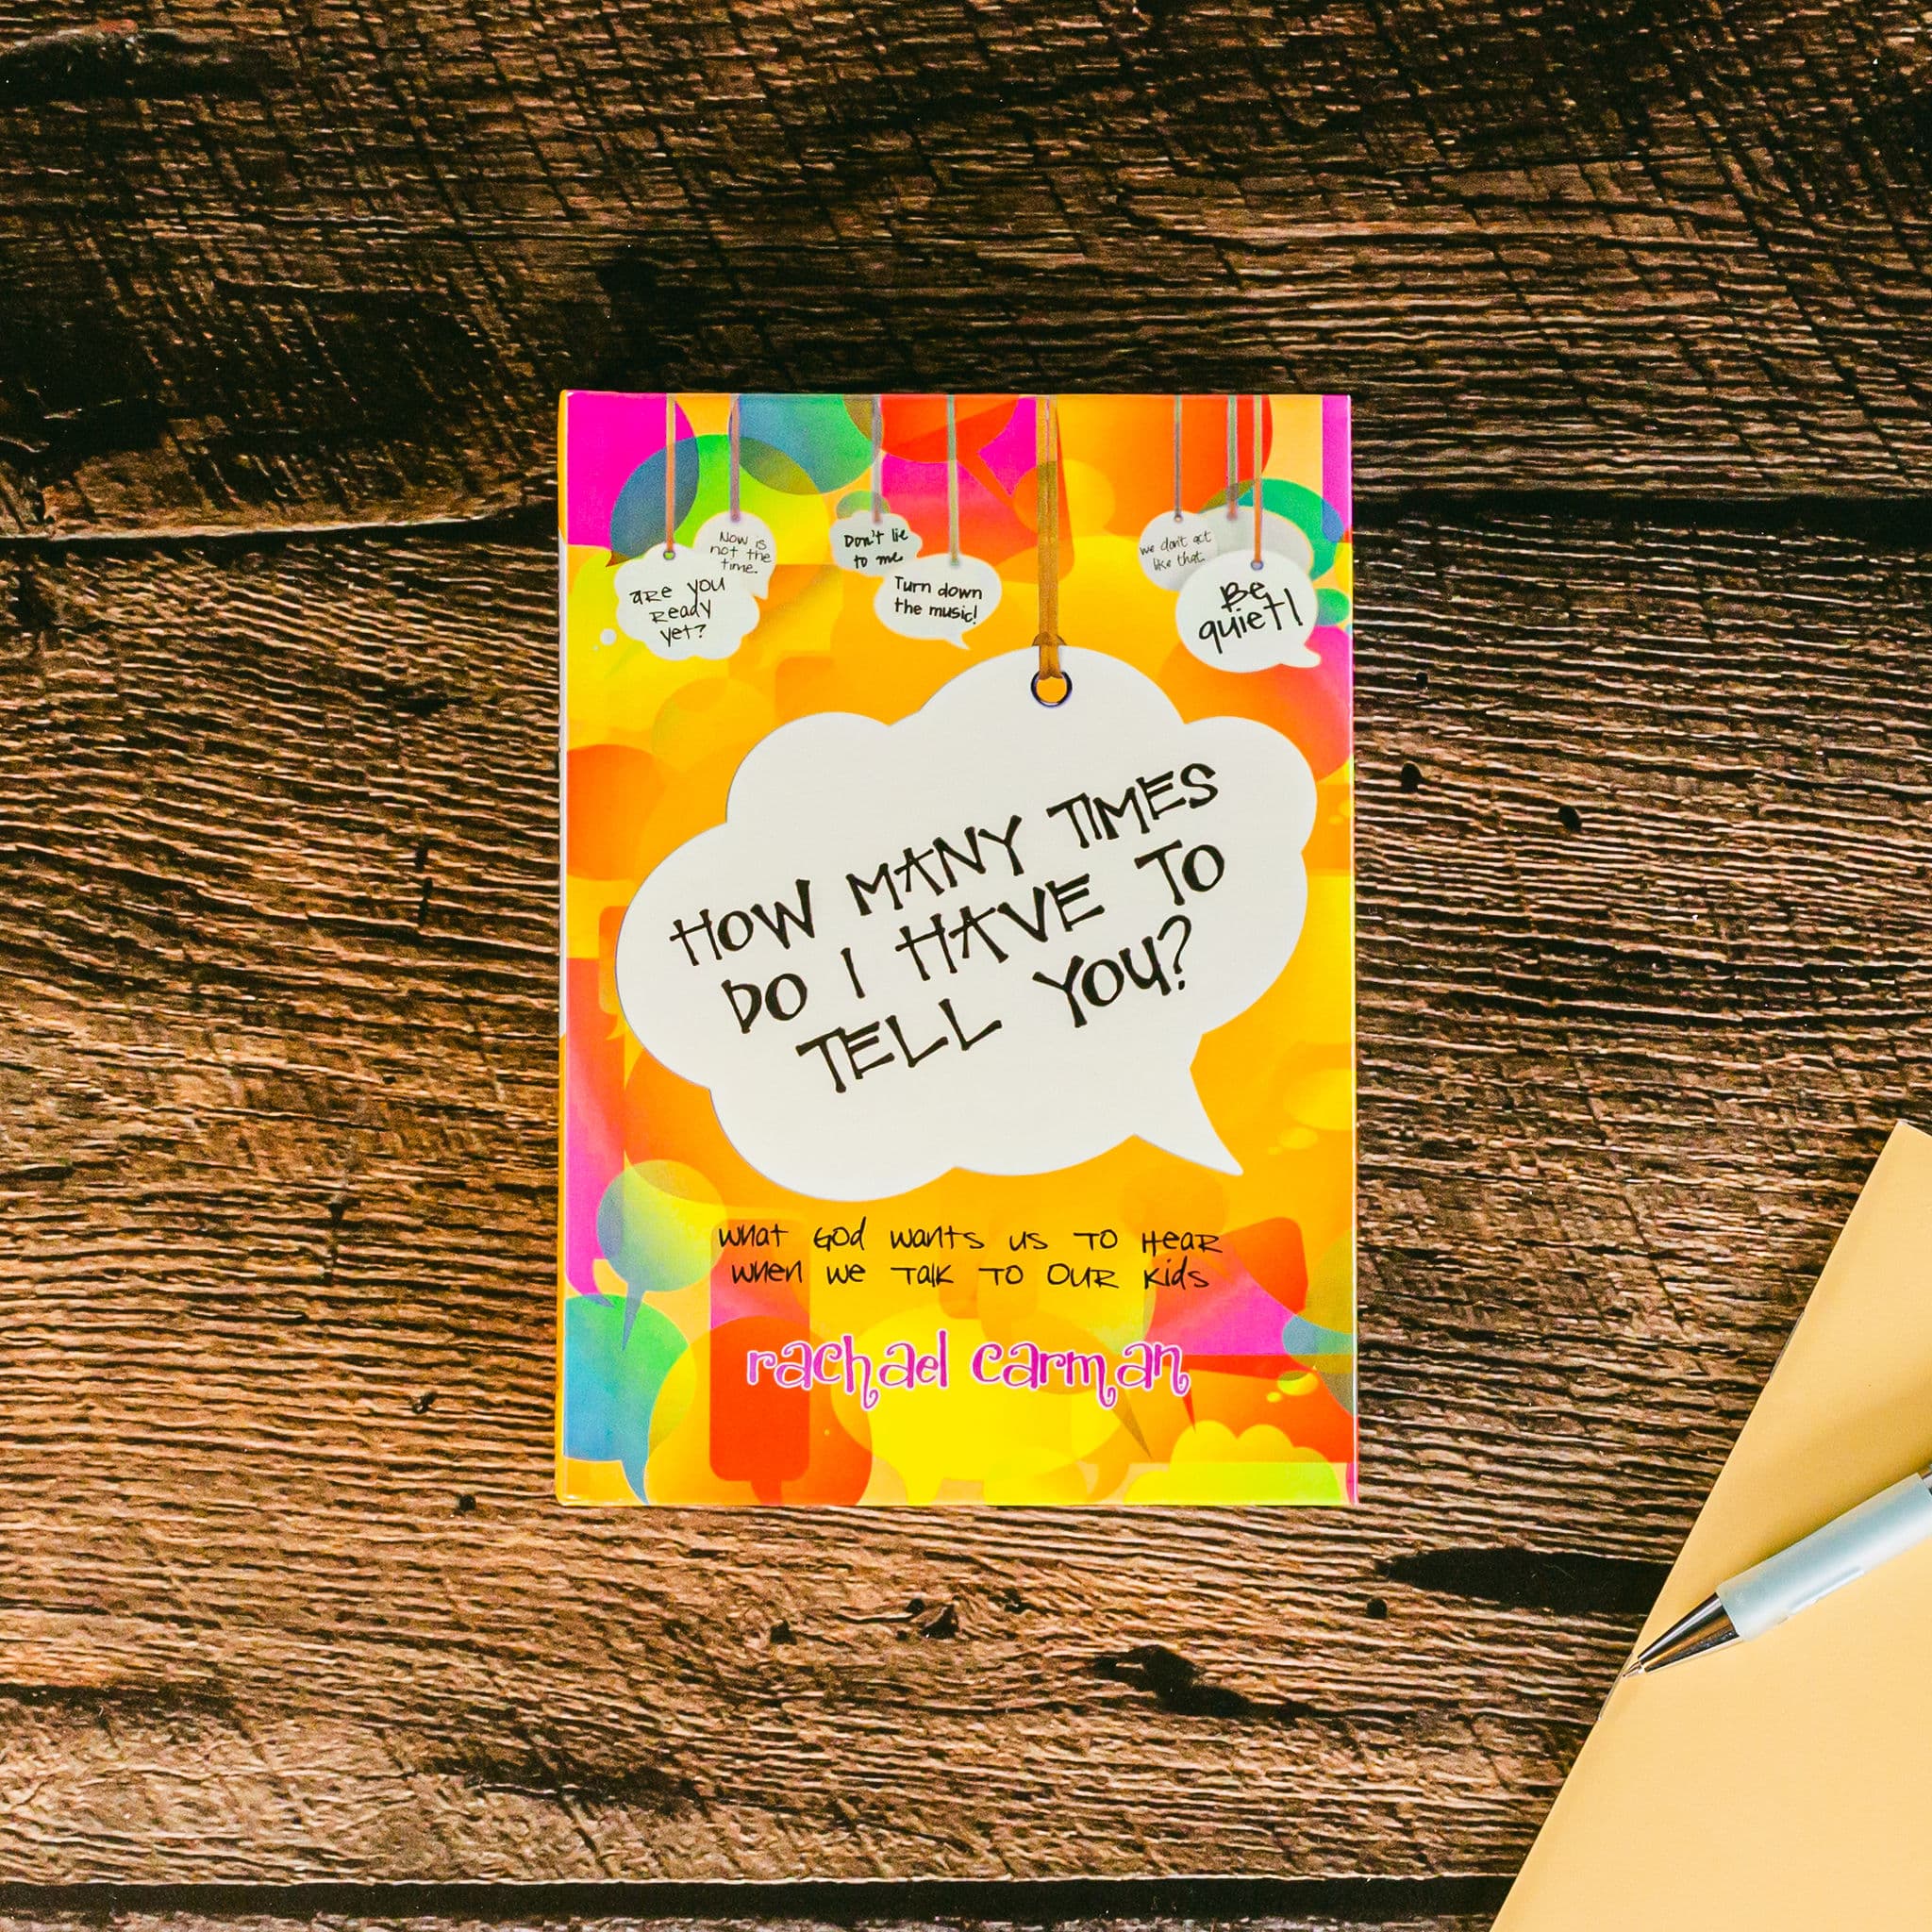 Now is
not the
time.
are you
Ready
yet?
Don't lie
to me
Turn down
the music!
we don't act
like that.
Be
quiet!
HOW MANY TIMES
DO I HAVE TO
TELL YOU?
what God wants us to hear
when we talk to our kids
rachael carman